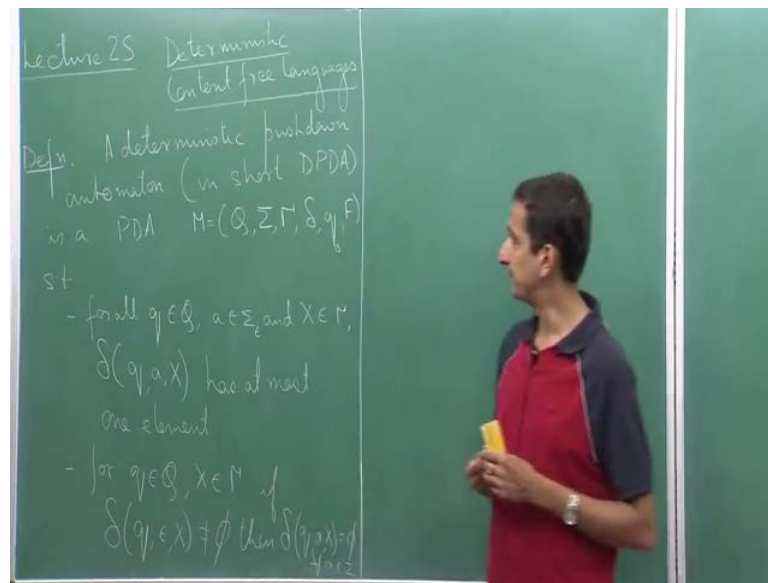 Lecture 25 Deterministic
Context free languages
Defn. A deterministic pushdown
automaton (in short DPDA)
is a PDA M=(Q, Σ, Γ, δ, q, F)
st
- for all q ∈ Q, a ∈ Σ_ε and X ∈ Γ,
δ(q, a, X) has at most
one element
- for q ∈ Q, X ∈ Γ if
δ(q, ε, X) ≠ ∅ then δ(q, a, X) = ∅
∀ a ∈ Σ